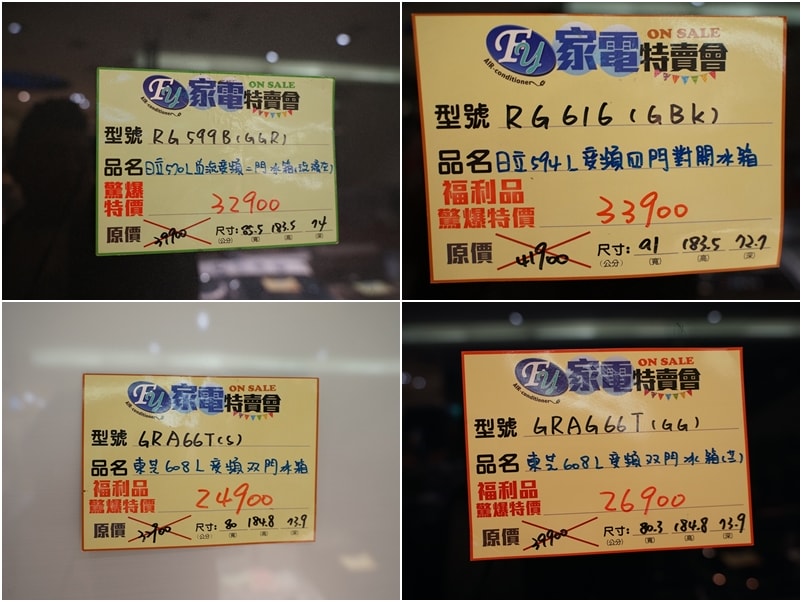 Fy 家電特賣會
ON SALE
AIR-conditioner
型號 RG599B(GGR)
品名 日立570L 變頻三門冰箱
驚爆特價 32900
原價 39900 尺寸: 85.5 183.5 74
(公分) (寬) (高) (深)
Fy 家電特賣會
ON SALE
AIR-conditioner
型號 RG616(GBK)
品名 日立594L變頻四門對開冰箱
福利品
驚爆特價 33900
原價 41900 尺寸: 91 183.5 73.7
(公分) (寬) (高) (深)
Fy 家電特賣會
ON SALE
AIR-conditioner
型號 GRA66T(S)
品名 東芝608L變頻双門冰箱
福利品
驚爆特價 24900
原價 尺寸: 80 184.8 73.9
(公分) (寬) (高) (深)
Fy 家電特賣會
ON SALE
AIR-conditioner
型號 GRAG66T(GG)
品名 東芝608L變頻双門冰箱
福利品
驚爆特價 26900
原價 39900 尺寸: 80.3 184.8 73.9
(公分) (寬) (高) (深)